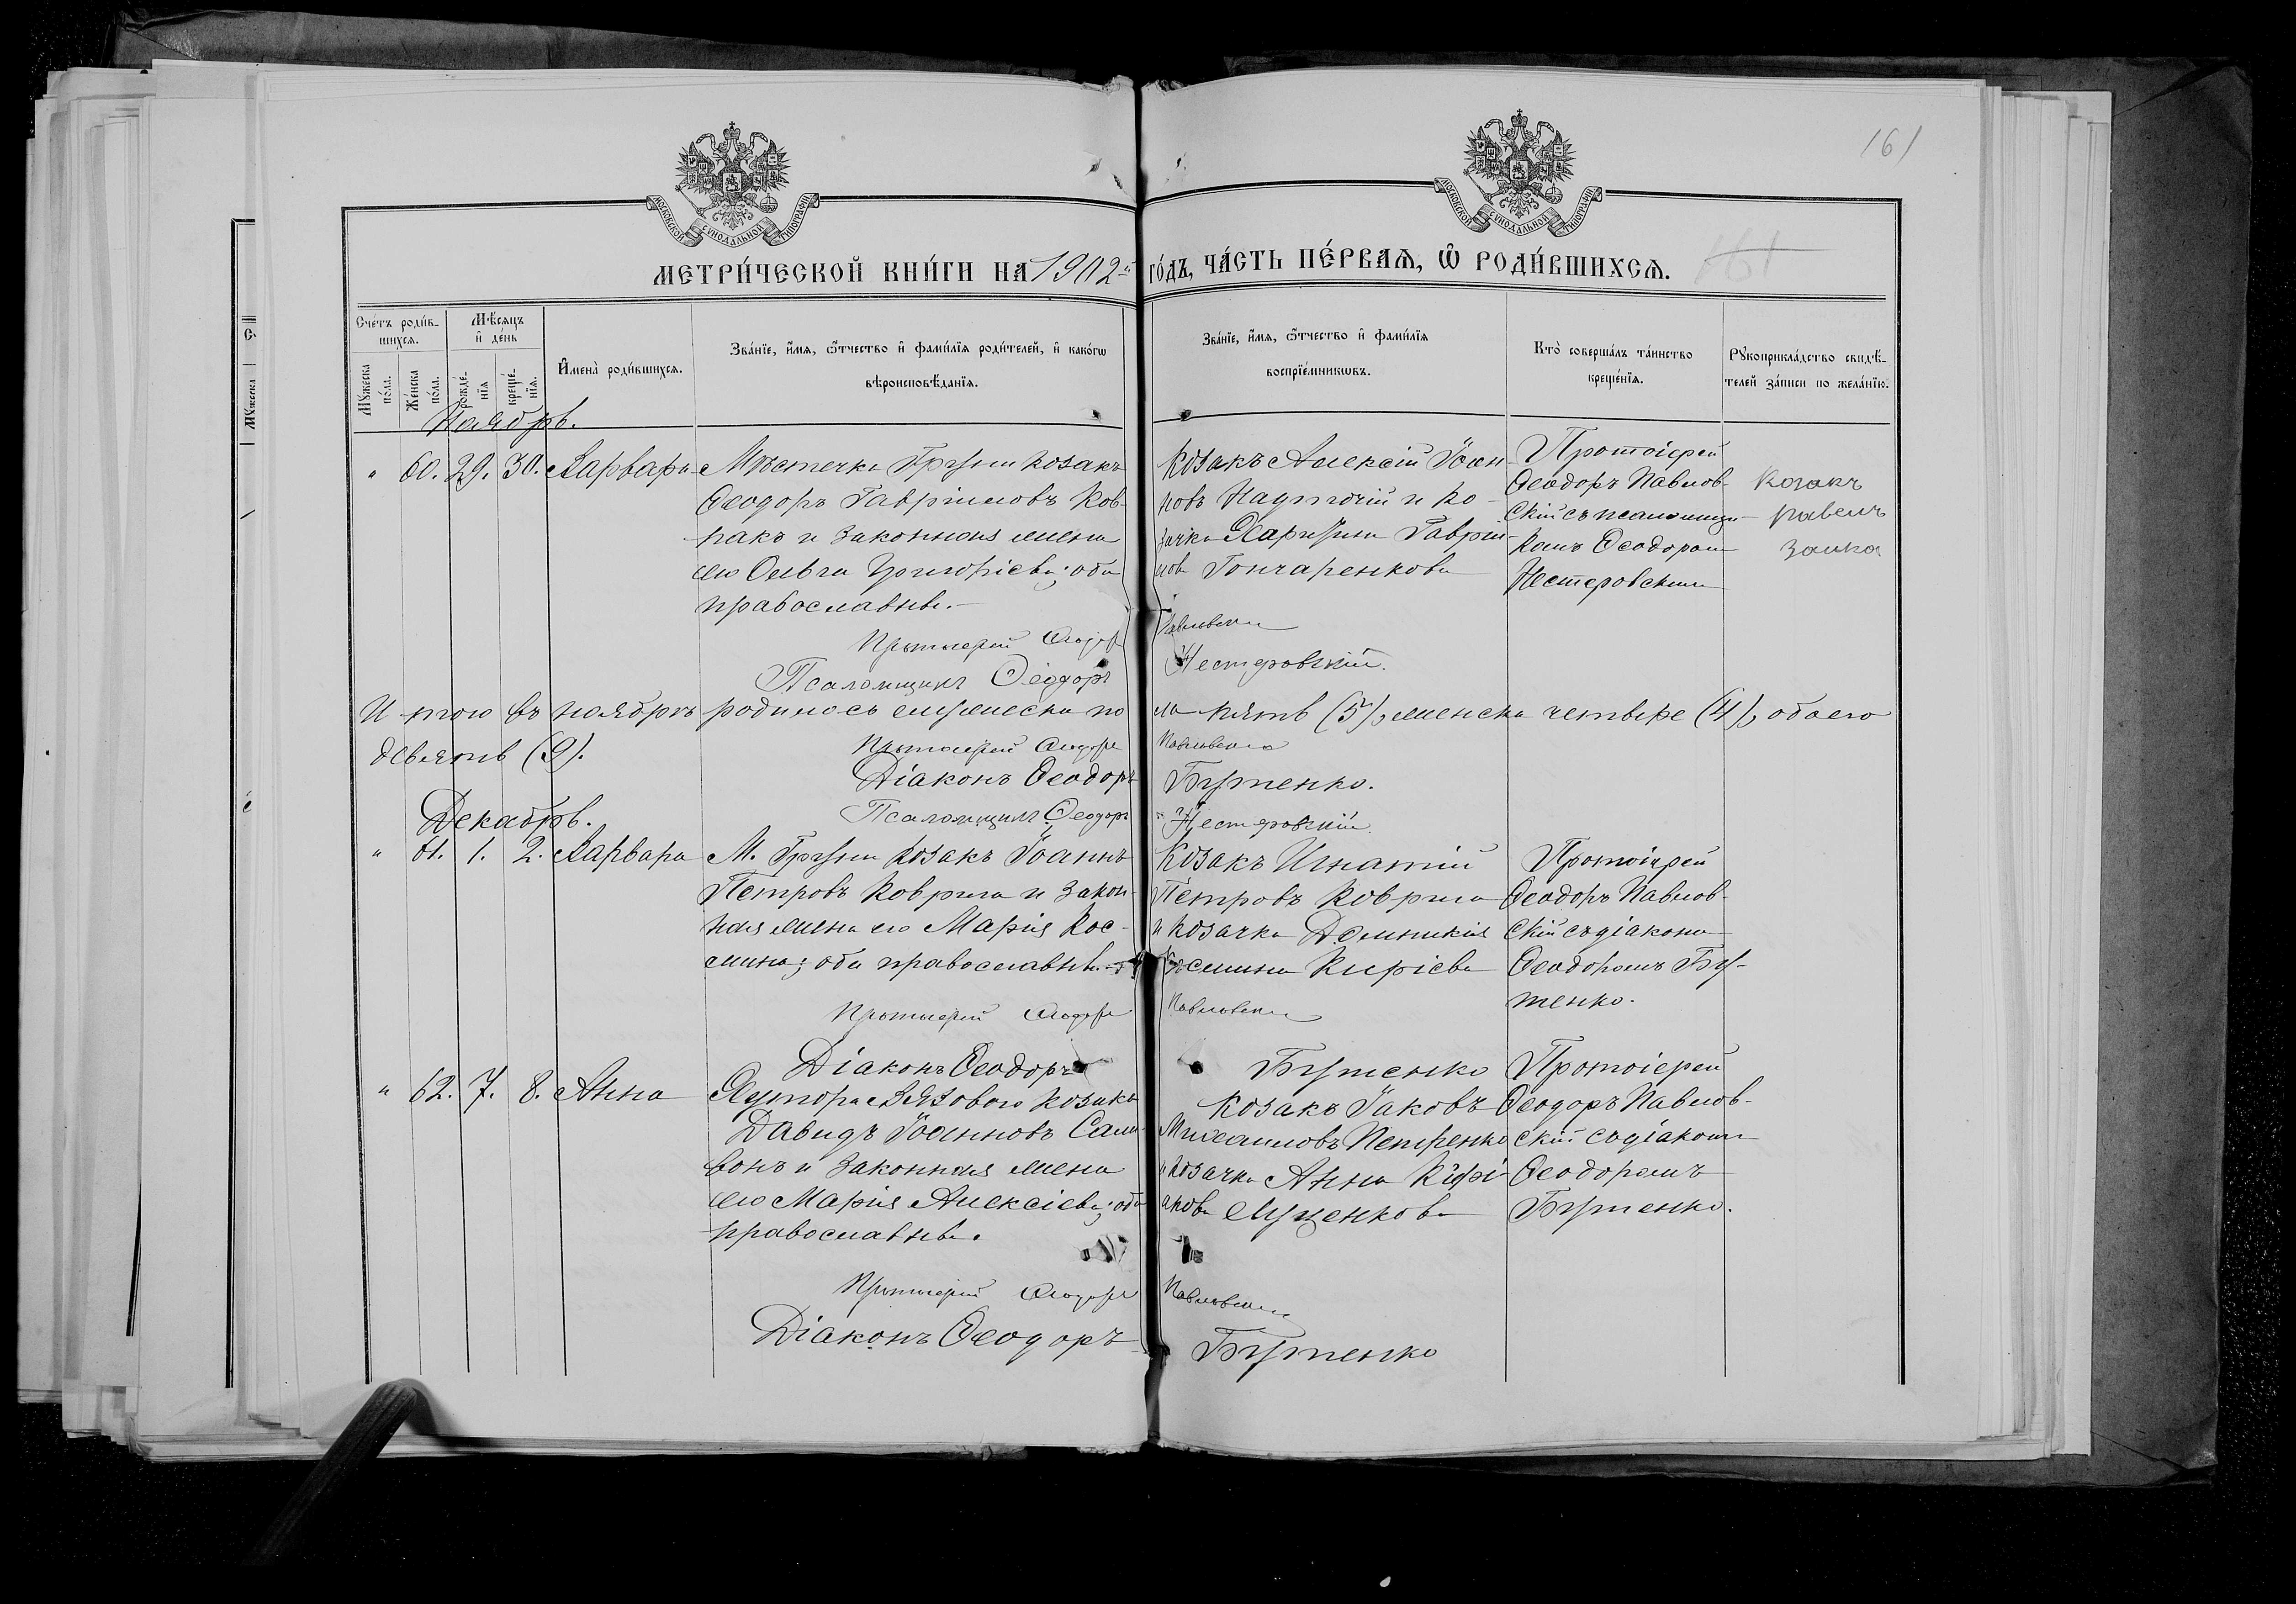 161
МОСКОВСКОЙ СУНОДАЛЬНОЙ ТИПОГРАФІИ
МОСКОВСКОЙ СУНОДАЛЬНОЙ ТИПОГРАФІИ
МЕТРИ́ЧЕСКОЙ КНИ́ГИ НА 1902 й ГО́ДЪ, ЧА́СТЬ ПЕ́РВАѦ, Ѡ РОДИ́ВШИХСѦ.
161
Сче́тъ роди́в-
шихся.
Мꙋ́жеска по́ла.
Же́нска по́ла.
Мѣ́сяцъ и де́нь
рожде́-нія
креще́-нія.
Имена̀ роди́вшихся.
Зва́ніе, и́мя, ѻ́тчество и фами́лія роди́телей, и како́гѡ
вѣроисповѣ́данія.
Зва́ніе, и́мя, ѻ́тчество и фами́лія
воспріе́мникѡвъ.
Кто̀ соверша́лъ та́инство
креще́нія.
Рꙋкоприкла́дство свидѣ́-
телей за́писи по жела́нію.
Ноябрь.
" 60. 29. 30. Варвара
Мѣстечка Груни козакъ
Ѳеодоръ Гавріиловъ Ков-
пакъ и законная жена
его Ольга Григоріева; оба
православные.
Козакъ Алексій Іоан-
новъ Надточій и ко-
зачка Харитина Гавріи-
лова Гончаренкова
Протоіерей
Ѳеодоръ Павлов-
скій съ псаломщи-
комъ Ѳеодоромъ
Нестеровскимъ
Козакъ
Павелъ
Заика
Протоіерей Ѳеодоръ Павловскій
Псаломщикъ Ѳеодоръ Нестеровскій.
Итого въ ноябрѣ родилось мужеска по ла пять (5), женска четыре (4), обоего
девять (9).
Протоіерей Ѳеодоръ Павловскій
Діаконъ Ѳеодоръ Бутенко.
Псаломщикъ Ѳеодоръ Нестеровскій
Декабрь.
" 61. 1. 2. Варвара
М. Груни козакъ Іоаннъ
Петровъ Коврига и закон-
ная жена его Марія Кос-
мина; оба православные.
Козакъ Игнатій
Петровъ Коврига
и козачка Домникія
Космина Киріева
Протоіерей
Ѳеодоръ Павлов-
скій съ діаконом
Ѳеодоромъ Бу-
тенко.
Протоіерей Ѳеодоръ Павловскій
Діаконъ Ѳеодоръ Бутенко
" 62. 7. 8. Анна
Хутора Вязового козакъ
Давидъ Іоанновъ Сам-
вонъ и законная жена
его Марія Алексіева; оба
православные.
Козакъ Іаковъ
Михаиловъ Петренко
и козачка Анна
Луценкова
Протоіерей
Ѳеодоръ Павлов-
скій съ діаконом
Ѳеодоромъ
Бутенко.
Протоіерей Ѳеодоръ Павловскій
Діаконъ Ѳеодоръ Бутенко